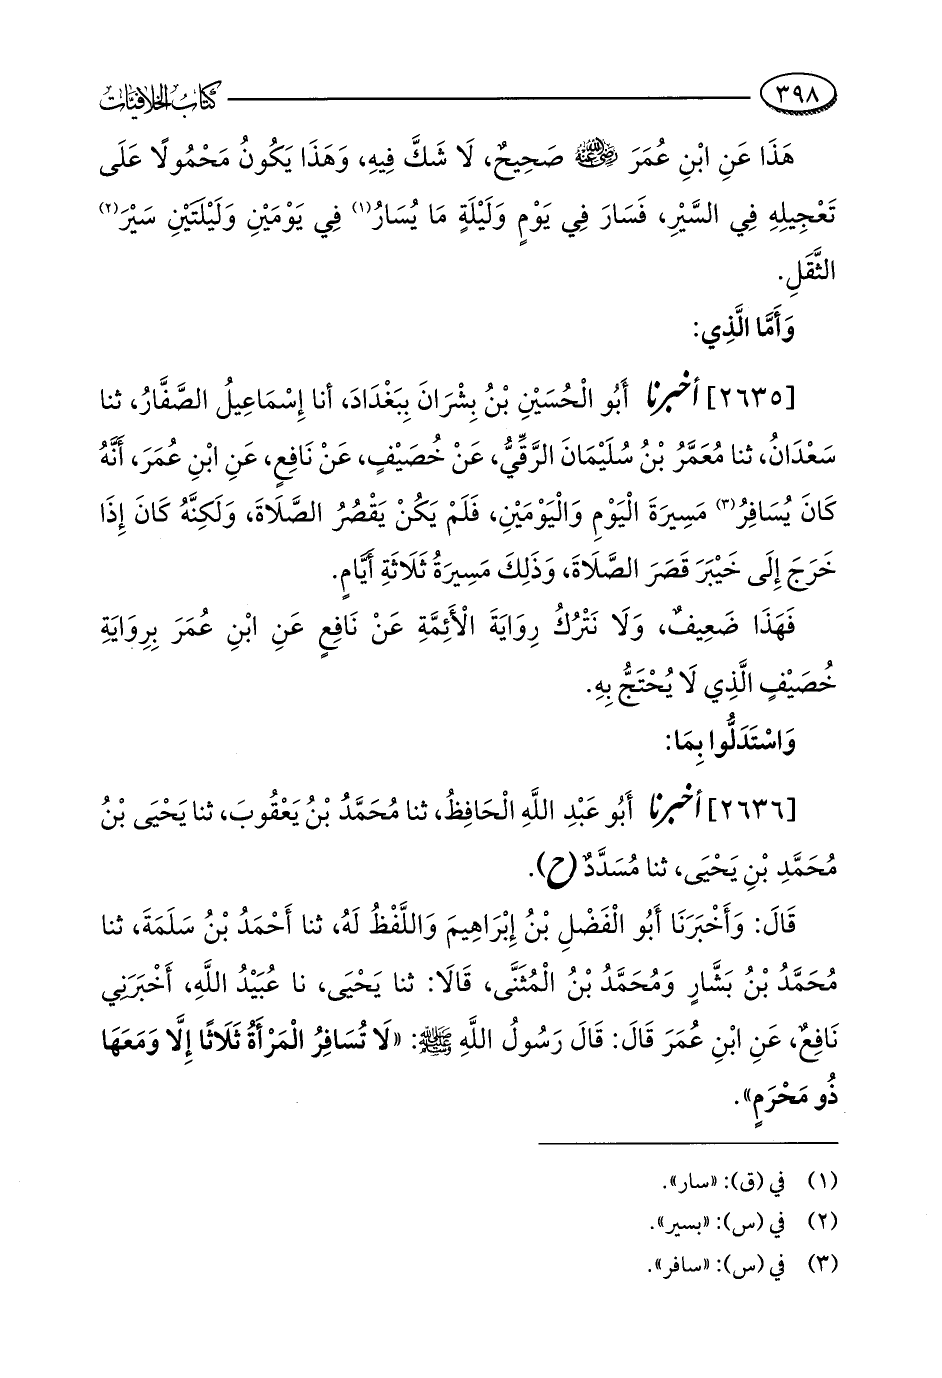 ٣٩٨ كتاب الخلافيات
هَذَا عَنِ ابْنِ عُمَرَ رَضِيَ اللَّهُ عَنْهُ صَحِيحٌ، لَا شَكَّ فِيهِ، وَهَذَا يَكُونُ مَحْمُولًا عَلَى
تَعْجِيلِهِ فِي السَّيْرِ، فَسَارَ فِي يَوْمٍ وَلَيْلَةٍ مَا يُسَارُ(١) فِي يَوْمَيْنِ وَلَيْلَتَيْنِ سَيْرَ(٢)
الثَّقَلِ.
وَأَمَّا الَّذِي:
[٢٦٣٥] أخبرنا أَبُو الْحُسَيْنِ بْنُ بِشْرَانَ بِبَغْدَادَ، أنا إِسْمَاعِيلُ الصَّفَّارُ، ثنا
سَعْدَانُ، ثنا مُعَمَّرُ بْنُ سُلَيْمَانَ الرَّقِّيُّ، عَنْ خُصَيْفٍ، عَنْ نَافِعٍ، عَنِ ابْنِ عُمَرَ، أَنَّهُ
كَانَ يُسَافِرُ(٣) مَسِيرَةَ الْيَوْمِ وَالْيَوْمَيْنِ، فَلَمْ يَكُنْ يَقْصُرُ الصَّلَاةَ، وَلَكِنَّهُ كَانَ إِذَا
خَرَجَ إِلَى خَيْبَرَ قَصَرَ الصَّلَاةَ، وَذَلِكَ مَسِيرَةُ ثَلَاثَةِ أَيَّامٍ.
فَهَذَا ضَعِيفٌ، وَلَا نَتْرُكُ رِوَايَةَ الْأَئِمَّةِ عَنْ نَافِعٍ عَنِ ابْنِ عُمَرَ بِرِوَايَةِ
خُصَيْفٍ الَّذِي لَا يُحْتَجُّ بِهِ.
وَاسْتَدَلُّوا بِمَا:
[٢٦٣٦] أخبرنا أَبُو عَبْدِ اللَّهِ الْحَافِظُ، ثنا مُحَمَّدُ بْنُ يَعْقُوبَ، ثنا يَحْيَى بْنُ
مُحَمَّدِ بْنِ يَحْيَى، ثنا مُسَدَّدٌ (ح).
قَالَ: وَأَخْبَرَنَا أَبُو الْفَضْلِ بْنُ إِبْرَاهِيمَ وَاللَّفْظُ لَهُ، ثنا أَحْمَدُ بْنُ سَلَمَةَ، ثنا
مُحَمَّدُ بْنُ بَشَّارٍ وَمُحَمَّدُ بْنُ الْمُثَنَّى، قَالَا: ثنا يَحْيَى، نا عُبَيْدُ اللَّهِ، أَخْبَرَنِي
نَافِعٌ، عَنِ ابْنِ عُمَرَ قَالَ: قَالَ رَسُولُ اللَّهِ ﷺ: «لَا تُسَافِرُ الْمَرْأَةُ ثَلَاثًا إِلَّا وَمَعَهَا
ذُو مَحْرَمٍ».
(١) في (ق): «سار».
(٢) في (س): «بسير».
(٣) في (س): «سافر».